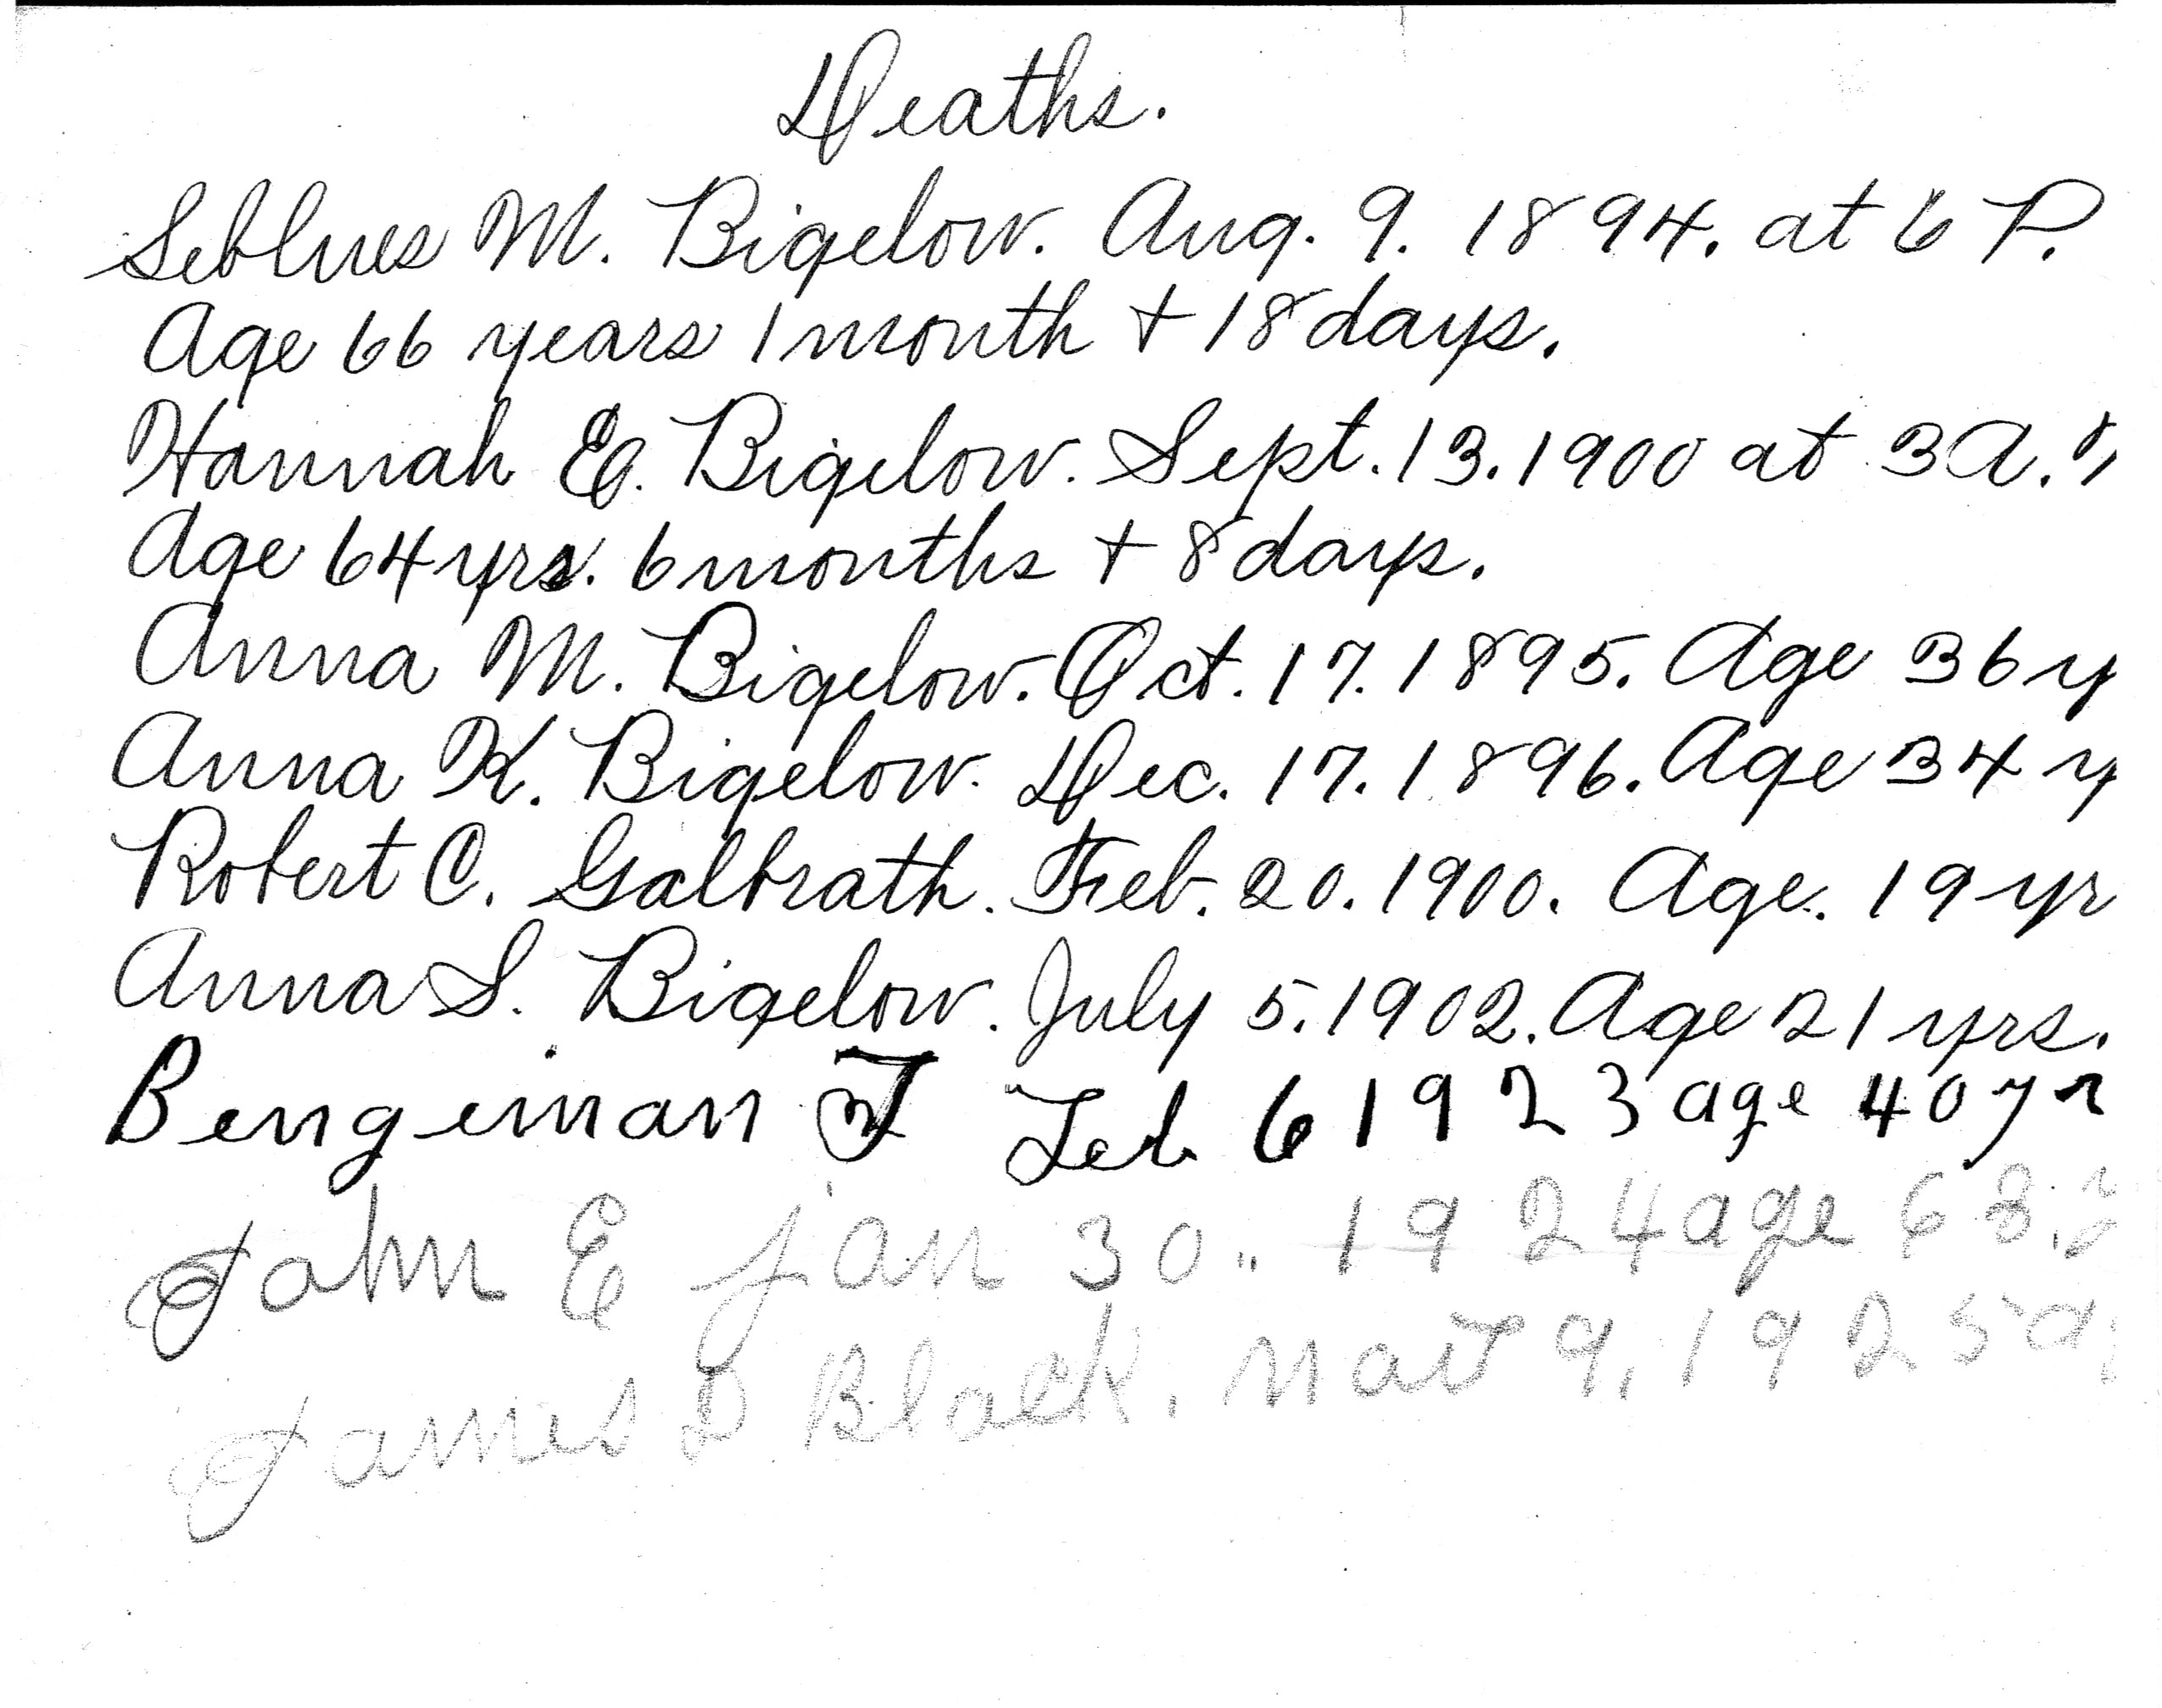 Deaths.
Seblues M. Bigelow. Aug. 9. 1894. at 6 P.
Age 66 years 1 month + 18 days.
Hannah E. Bigelow. Sept. 13. 1900 at 3 A.
Age 64 yrs. 6 months + 8 days.
Anna M. Bigelow. Oct. 17. 1895. Age 36 y
Anna K. Bigelow. Dec. 17. 1896. Age 34 y
Robert C. Galbrath. Feb. 20. 1900. Age. 19 yr
Anna S. Bigelow. July 5. 1902. Age 21 yrs.
Bengeman F Feb 6 1923 age 40 yr
John E jan 30.. 1924 age 68
James D Black. mar 9, 1925